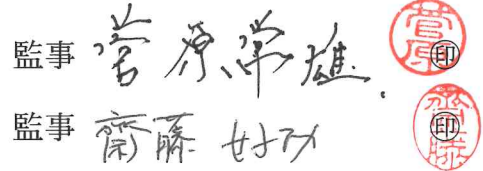 監事 菅原常雄 ㊞
監事 齋藤 好功 ㊞